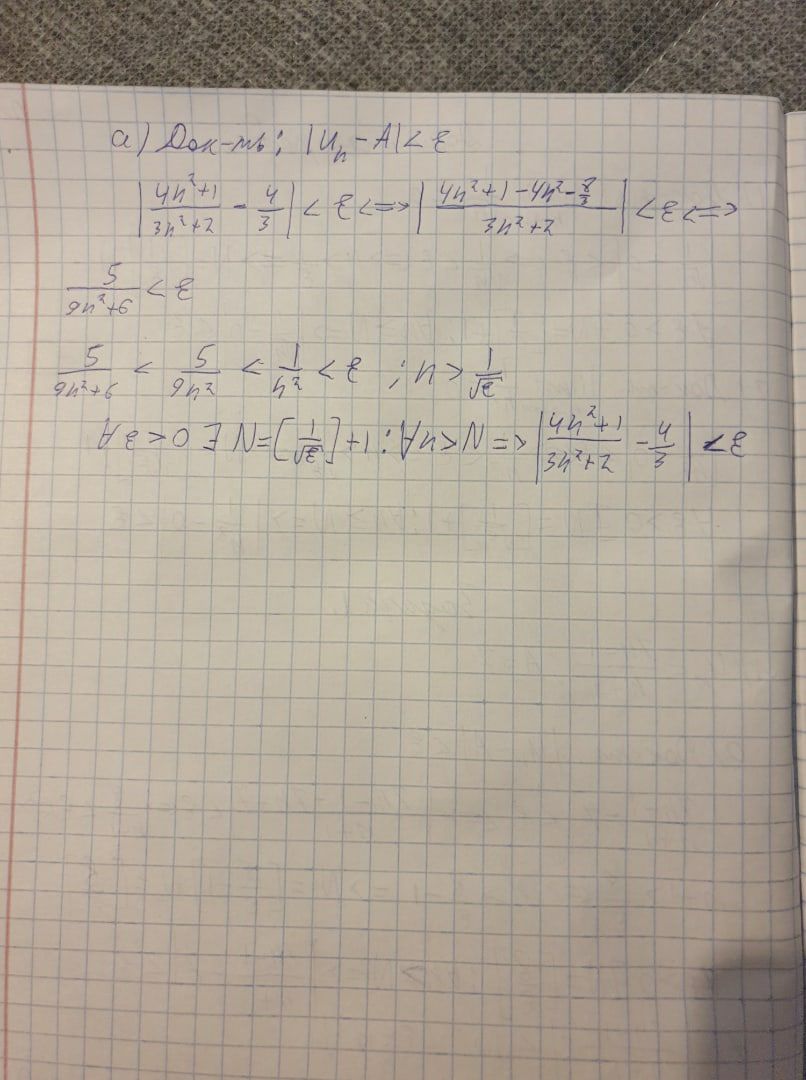 а) Док-ть: |Uₙ - A| < ε
|(4n²+1)/(3n²+2) - 4/3| < ε <=> |(4n²+1-4n²-8/3)/(3n²+2)| < ε <=>
5/(9n²+6) < ε
5/(9n²+6) < 5/(9n²) < 1/n² < ε ; n > 1/√ε
∀ε>0 ∃ N=[1/√ε]+1: ∀n>N => |(4n²+1)/(3n²+2) - 4/3| < ε